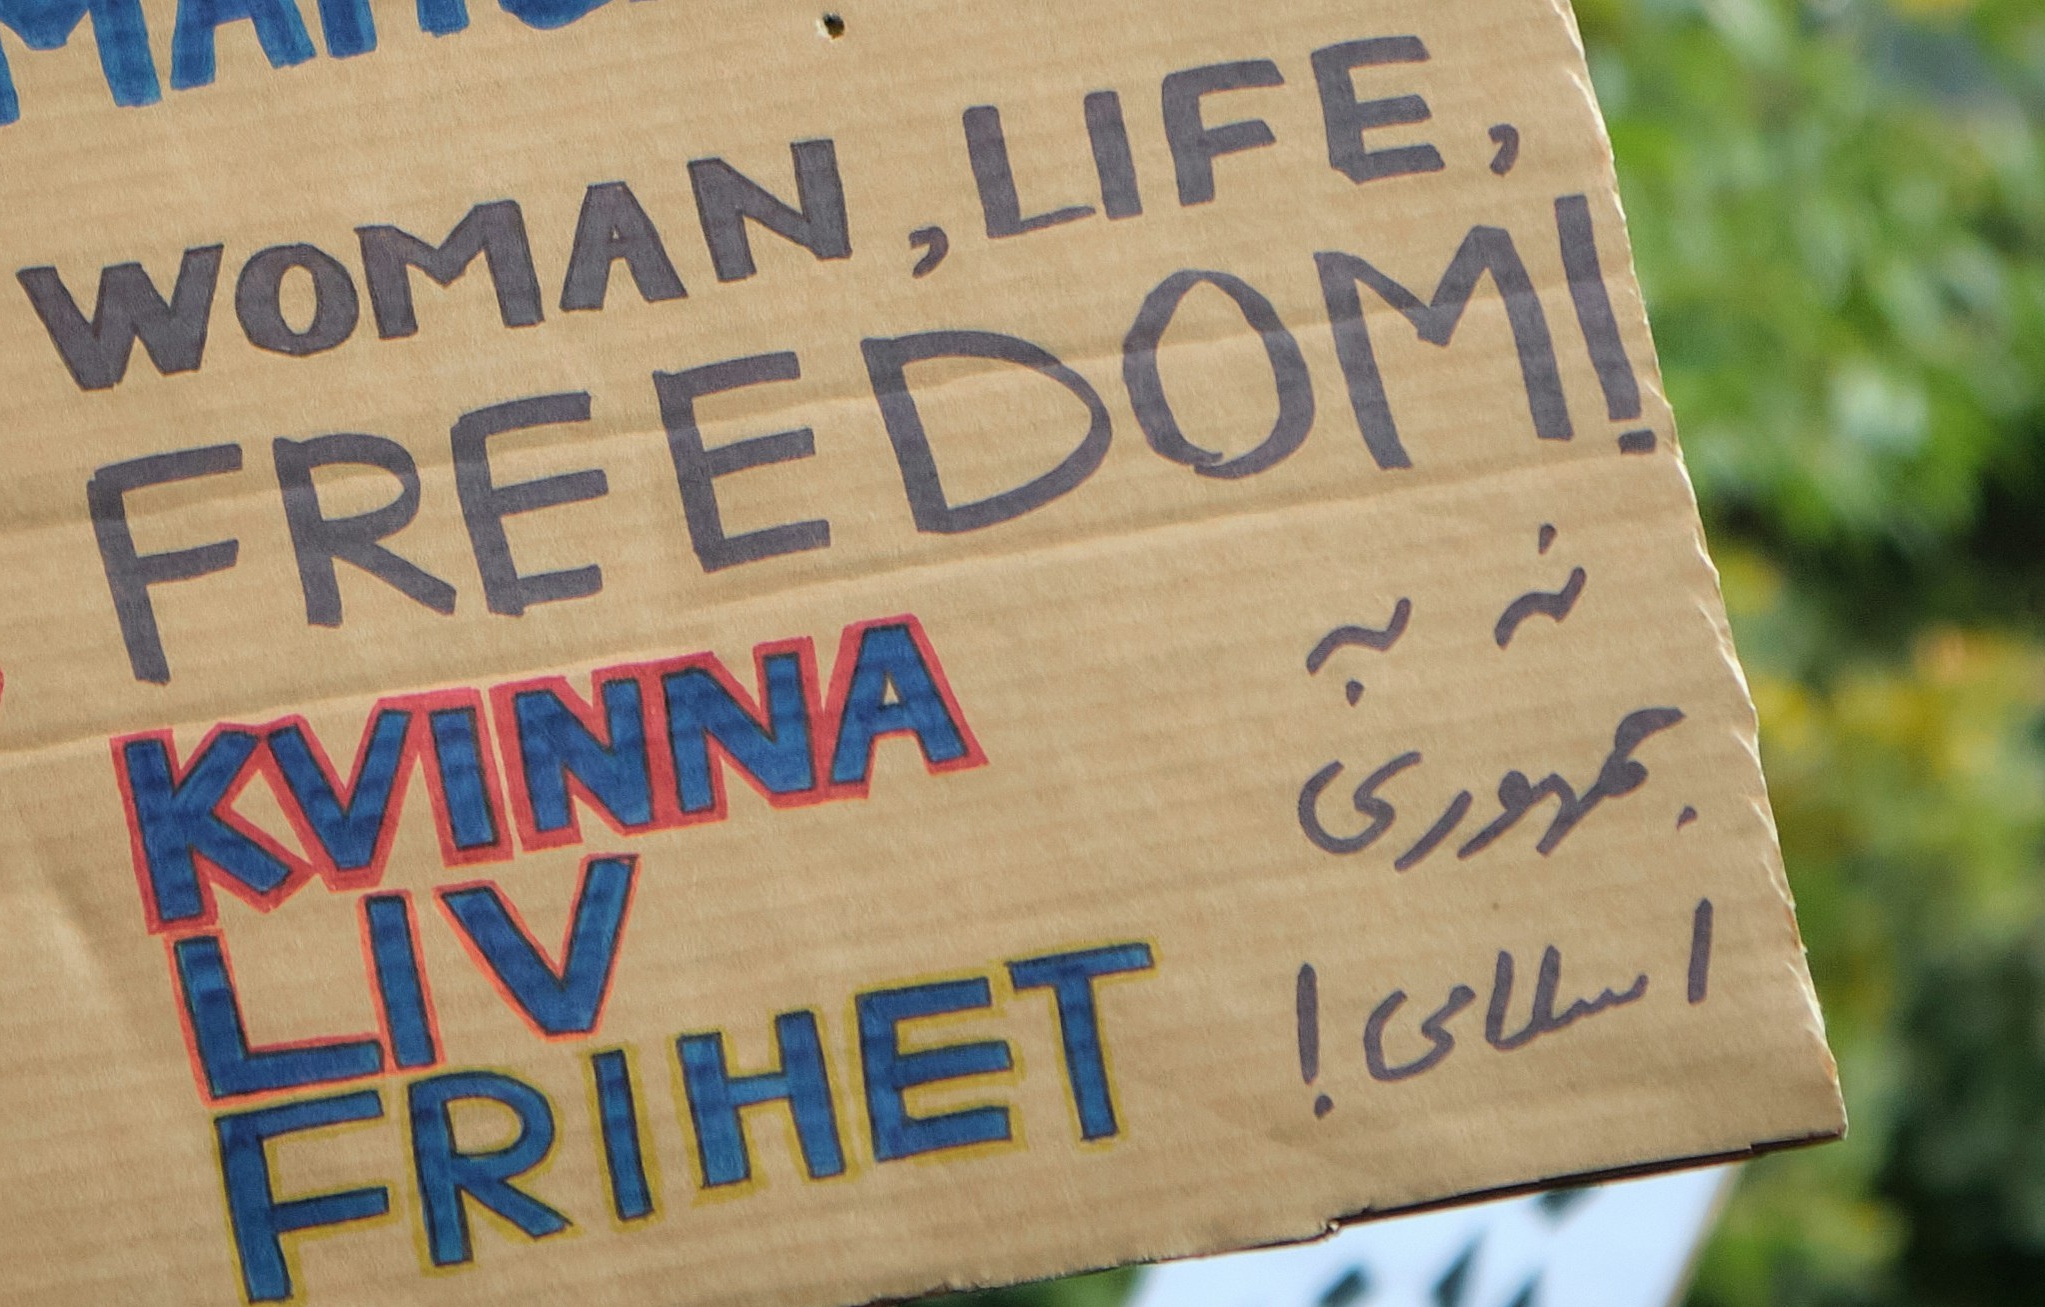 WOMAN, LIFE,
FREEDOM!
KVINNA
LIV
FRIHET
نه به
جمهوری
اسلامی!